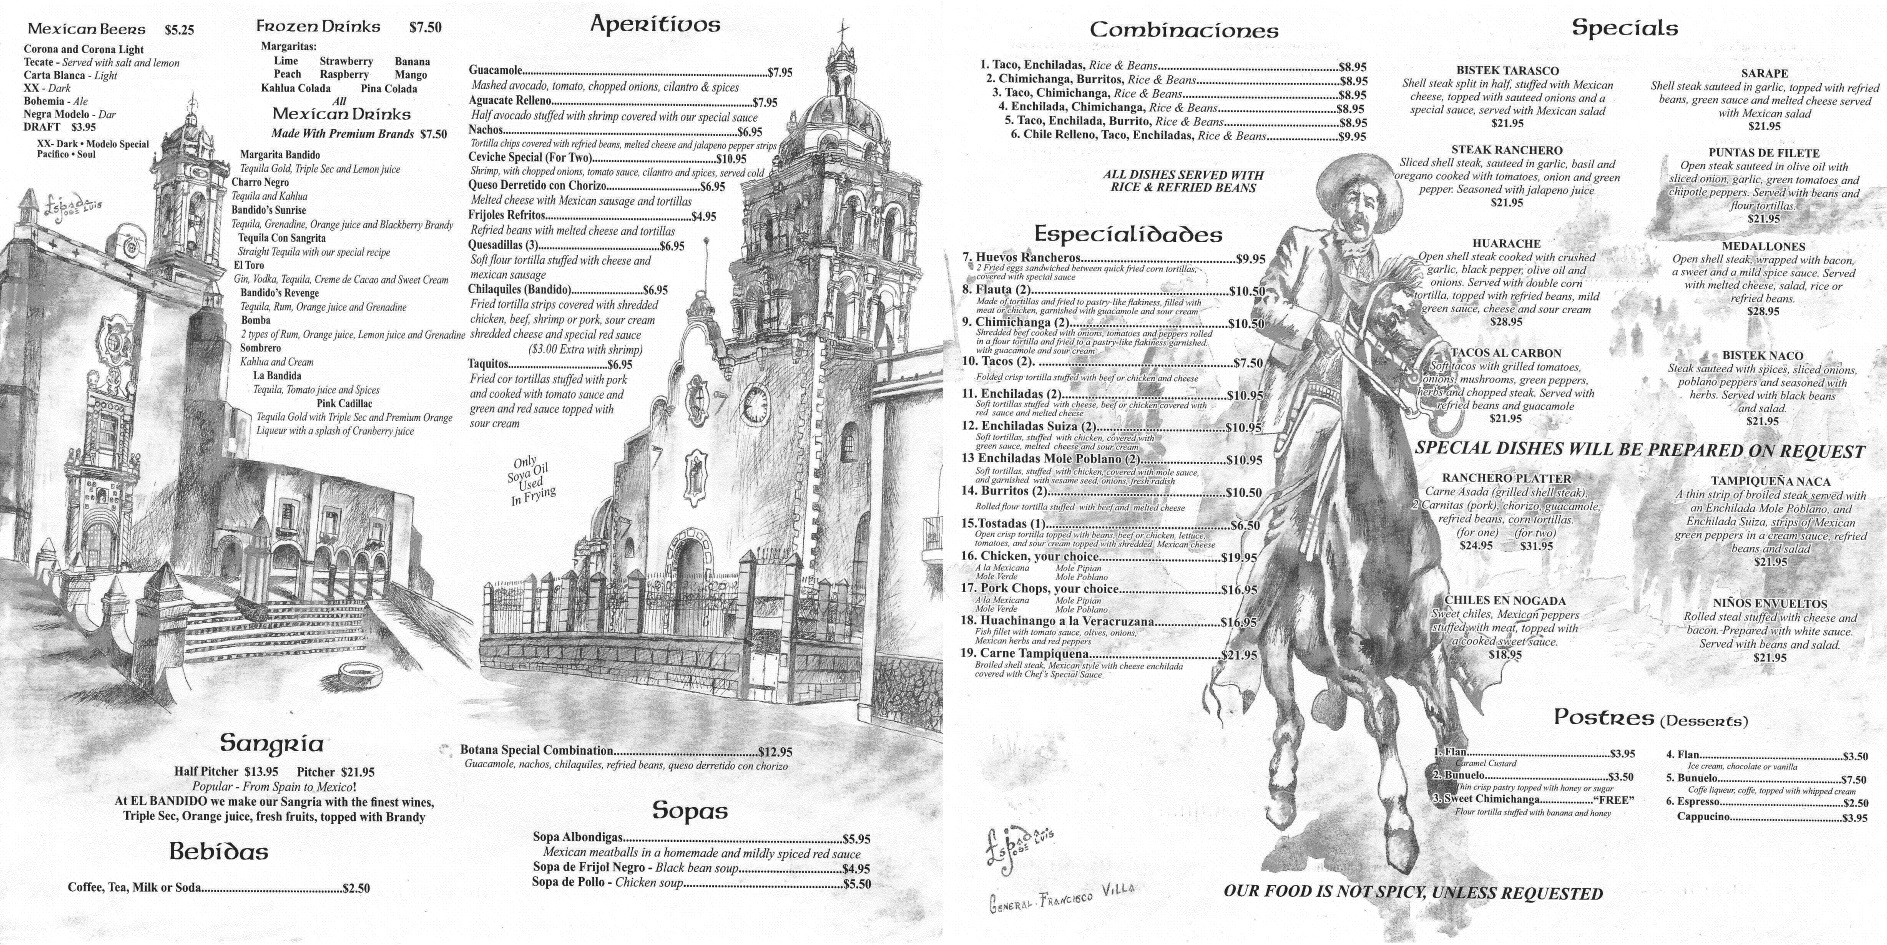 Mexican Beers $5.25
Corona and Corona Light
Tecate - Served with salt and lemon
Carta Blanca - Light
XX - Dark
Bohemia - Ale
Negra Modelo - Dar
DRAFT $3.95
XX- Dark • Modelo Special
Pacifico • Soul
Espada
JOSE LUIS
Frozen Drinks $7.50
Margaritas:
Lime Strawberry Banana
Peach Raspberry Mango
Kahlua Colada Pina Colada
All
Mexican Drinks
Made With Premium Brands $7.50
Margarita Bandido
Tequila Gold, Triple Sec and Lemon juice
Charro Negro
Tequila and Kahlua
Bandido's Sunrise
Tequila, Grenadine, Orange juice and Blackberry Brandy
Tequila Con Sangrita
Straight Tequila with our special recipe
El Toro
Gin, Vodka, Tequila, Creme de Cacao and Sweet Cream
Bandido's Revenge
Tequila, Rum, Orange juice and Grenadine
Bomba
2 types of Rum, Orange juice, Lemon juice and Grenadine
Sombrero
Kahlua and Cream
La Bandida
Tequila, Tomato juice and Spices
Pink Cadillac
Tequila Gold with Triple Sec and Premium Orange
Liqueur with a splash of Cranberry juice
Sangria
Half Pitcher $13.95 Pitcher $21.95
Popular - From Spain to Mexico!
At EL BANDIDO we make our Sangria with the finest wines,
Triple Sec, Orange juice, fresh fruits, topped with Brandy
Bebidas
Coffee, Tea, Milk or Soda...$2.50
Aperitivos
Guacamole...$7.95
Mashed avocado, tomato, chopped onions, cilantro & spices
Aguacate Relleno...$7.95
Half avocado stuffed with shrimp covered with our special sauce
Nachos...$6.95
Tortilla chips covered with refried beans, melted cheese and jalapeno pepper strips
Ceviche Special (For Two)...$10.95
Shrimp, with chopped onions, tomato sauce, cilantro and spices, served cold
Queso Derretido con Chorizo...$6.95
Melted cheese with Mexican sausage and tortillas
Frijoles Refritos...$4.95
Refried beans with melted cheese and tortillas
Quesadillas (3)...$6.95
Soft flour tortilla stuffed with cheese and
mexican sausage
Chilaquiles (Bandido)...$6.95
Fried tortilla strips covered with shredded
chicken, beef, shrimp or pork, sour cream
shredded cheese and special red sauce
($3.00 Extra with shrimp)
Taquitos...$6.95
Fried cor tortillas stuffed with pork
and cooked with tomato sauce and
green and red sauce topped with
sour cream
Only
Soya Oil
Used
In Frying
Botana Special Combination...$12.95
Guacamole, nachos, chilaquiles, refried beans, queso derretido con chorizo
Sopas
Sopa Albondigas...$5.95
Mexican meatballs in a homemade and mildly spiced red sauce
Sopa de Frijol Negro - Black bean soup...$4.95
Sopa de Pollo - Chicken soup...$5.50
Combinaciones
1. Taco, Enchiladas, Rice & Beans...$8.95
2. Chimichanga, Burritos, Rice & Beans...$8.95
3. Taco, Chimichanga, Rice & Beans...$8.95
4. Enchilada, Chimichanga, Rice & Beans...$8.95
5. Taco, Enchilada, Burrito, Rice & Beans...$8.95
6. Chile Relleno, Taco, Enchiladas, Rice & Beans...$9.95
ALL DISHES SERVED WITH
RICE & REFRIED BEANS
Especialidades
7. Huevos Rancheros...$9.95
2 Fried eggs sandwiched between quick fried corn tortillas,
covered with special sauce
8. Flauta (2)...$10.50
Made of tortillas and fried to pastry-like flakiness, filled with
meat or chicken, garnished with guacamole and sour cream
9. Chimichanga (2)...$10.50
Shredded beef cooked with onions, tomatoes and peppers rolled
in a flour tortilla and fried to a pastry-like flakiness garnished.
with guacamole and sour cream
10. Tacos (2)...$7.50
Folded crisp tortilla stuffed with beef or chicken and cheese
11. Enchiladas (2)...$10.95
Soft tortillas stuffed with cheese, beef or chicken covered with
red sauce and melted cheese
12. Enchiladas Suiza (2)...$10.95
Soft tortillas, stuffed with chicken, covered with
green sauce, melted cheese and sour cream
13 Enchiladas Mole Poblano (2)...$10.95
Soft tortillas, stuffed with chicken, covered with mole sauce,
and garnished with sesame seed, onions, fresh radish
14. Burritos (2)...$10.50
Rolled flour tortilla stuffed with beef and melted cheese
15.Tostadas (1)...$6.50
Open crisp tortilla topped with beans, beef or chicken, lettuce,
tomatoes, and sour cream topped with shredded Mexican cheese
16. Chicken, your choice...$19.95
A la Mexicana Mole Pipian
Mole Verde Mole Poblano
17. Pork Chops, your choice...$16.95
A la Mexicana Mole Pipian
Mole Verde Mole Poblano
18. Huachinango a la Veracruzana...$16.95
Fish fillet with tomato sauce, olives, onions,
Mexican herbs and red peppers
19. Carne Tampiquena...$21.95
Broiled shell steak, Mexican style with cheese enchilada
covered with Chef's Special Sauce
Espada
JOSE LUIS
GENERAL. FRANCISCO VILLA
Specials
BISTEK TARASCO
Shell steak split in half, stuffed with Mexican
cheese, topped with sauteed onions and a
special sauce, served with Mexican salad
$21.95
STEAK RANCHERO
Sliced shell steak, sauteed in garlic, basil and
oregano cooked with tomatoes, onion and green
pepper. Seasoned with jalapeno juice
$21.95
HUARACHE
Open shell steak cooked with crushed
garlic, black pepper, olive oil and
onions. Served with double corn
tortilla, topped with refried beans, mild
green sauce, cheese and sour cream
$28.95
TACOS AL CARBON
Soft tacos with grilled tomatoes,
onions, mushrooms, green peppers,
herbs and chopped steak. Served with
refried beans and guacamole
$21.95
SARAPE
Shell steak sauteed in garlic, topped with refried
beans, green sauce and melted cheese served
with Mexican salad
$21.95
PUNTAS DE FILETE
Open steak sauteed in olive oil with
sliced onion, garlic, green tomatoes and
chipotle peppers. Served with beans and
flour tortillas.
$21.95
MEDALLONES
Open shell steak, wrapped with bacon,
a sweet and a mild spice sauce. Served
with melted cheese, salad, rice or
refried beans.
$28.95
BISTEK NACO
Steak sauteed with spices, sliced onions,
poblano peppers and seasoned with
herbs. Served with black beans
and salad.
$21.95
SPECIAL DISHES WILL BE PREPARED ON REQUEST
RANCHERO PLATTER
Carne Asada (grilled shell steak).
2 Carnitas (pork), chorizo, guacamole,
refried beans, corn tortillas.
(for one) (for two)
$24.95 $31.95
CHILES EN NOGADA
Sweet chiles, Mexican peppers
stuffed with meat, topped with
a cooked sweet sauce.
$18.95
TAMPIQUEÑA NACA
A thin strip of broiled steak served with
an Enchilada Mole Poblano, and
Enchilada Suiza, strips of Mexican
green peppers in a cream sauce, refried
beans and salad
$21.95
NIÑOS ENVUELTOS
Rolled steal stuffed with cheese and
bacon. Prepared with white sauce.
Served with beans and salad.
$21.95
Postres (Desserts)
1. Flan...$3.95
Caramel Custard
2. Bunuelo...$3.50
Thin crisp pastry topped with honey or sugar
3. Sweet Chimichanga..."FREE"
Flour tortilla stuffed with banana and honey
4. Flan...$3.50
Ice cream, chocolate or vanilla
5. Bunuelo...$7.50
Coffe liqueur, coffe, topped with whipped cream
6. Espresso...$2.50
Cappucino...$3.95
OUR FOOD IS NOT SPICY, UNLESS REQUESTED